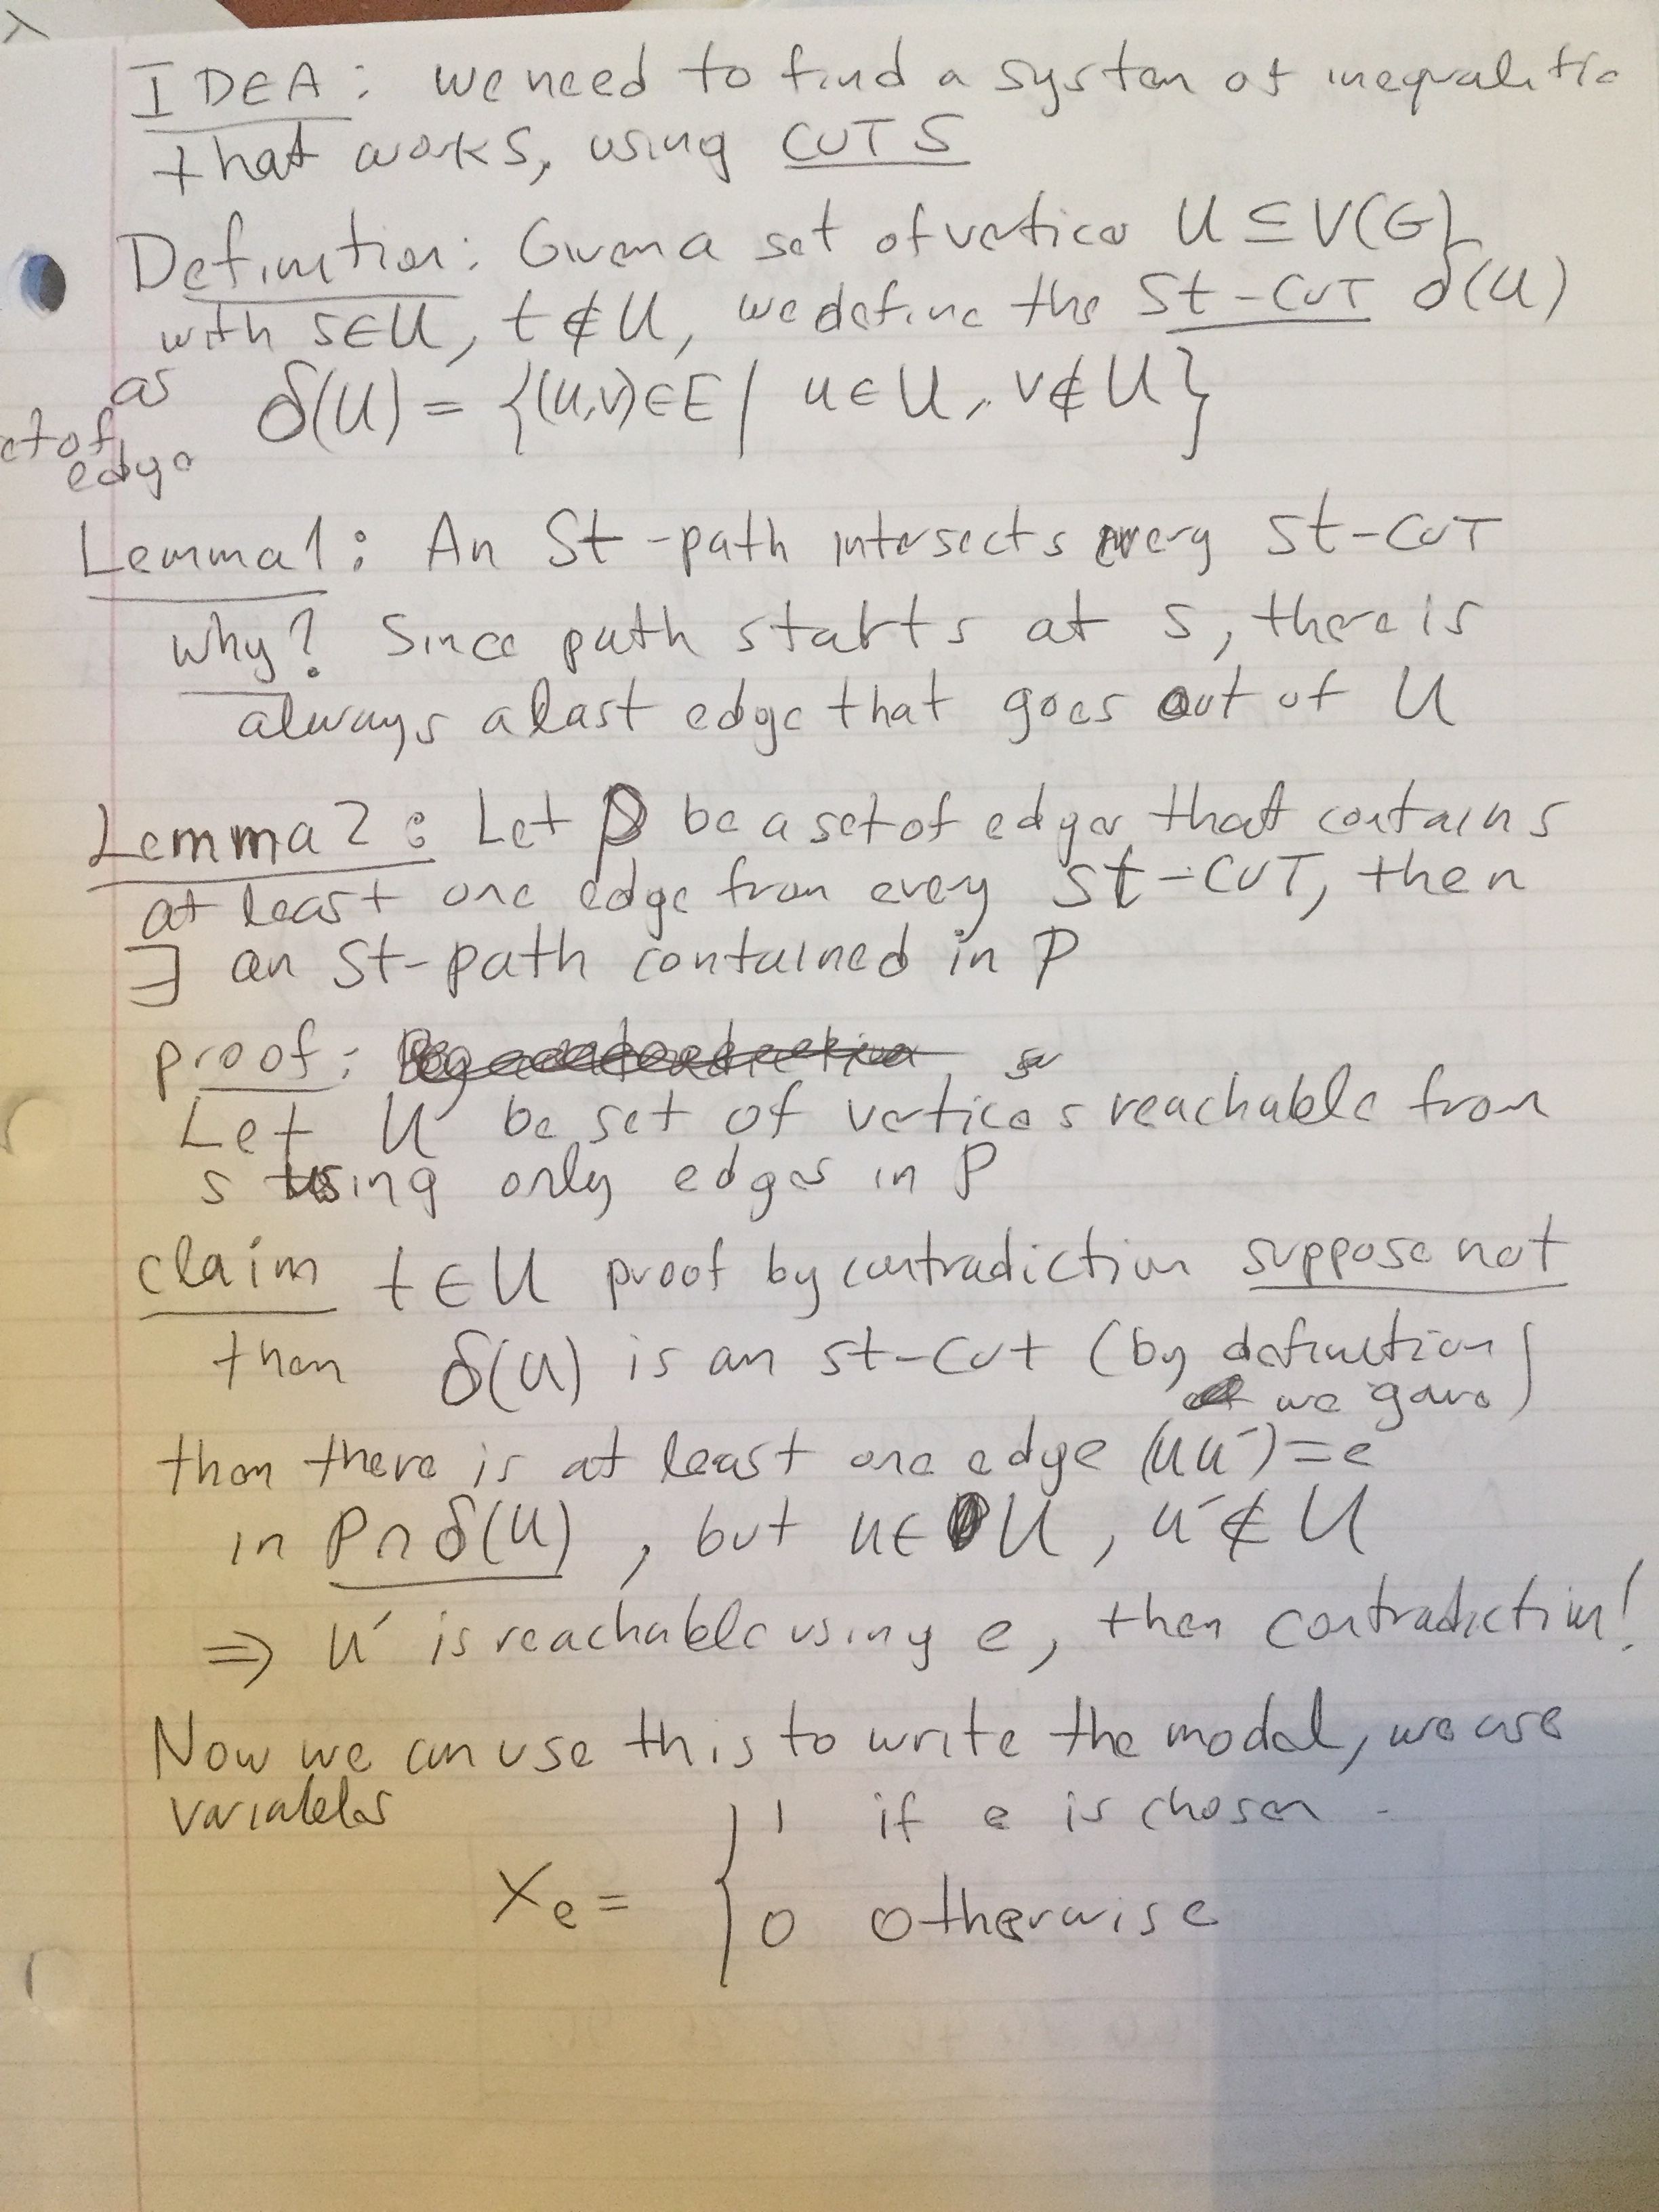 IDEA: we need to find a system of inequalitie
that works, using CUTS
Definition: Given a set of vertices U ⊆ V(G)
with s∈U, t∉U, we define the st-CUT δ(U)
as δ(U) = {(u,v)∈E | u∈U, v∉U}
et of
edge
Lemma 1: An St-path intersects every st-CUT
why? Since path starts at s, there is
always a last edge that goes out of U
Lemma 2: Let P be a set of edges that contains
at least one edge from every st-CUT, then
∃ an St-path contained in P
proof:
Let U be set of vertices reachable from
s using only edges in P
claim t∈U proof by contradiction suppose not
then δ(U) is an st-cut (by definition
we gave)
then there is at least one edge (uu')=e
in P∩δ(U), but u∈U, u'∉U
⇒ u' is reachable using e, then contradiction!
Now we can use this to write the model, we use
variables
1 if e is chosen
Xe = {
0 otherwise